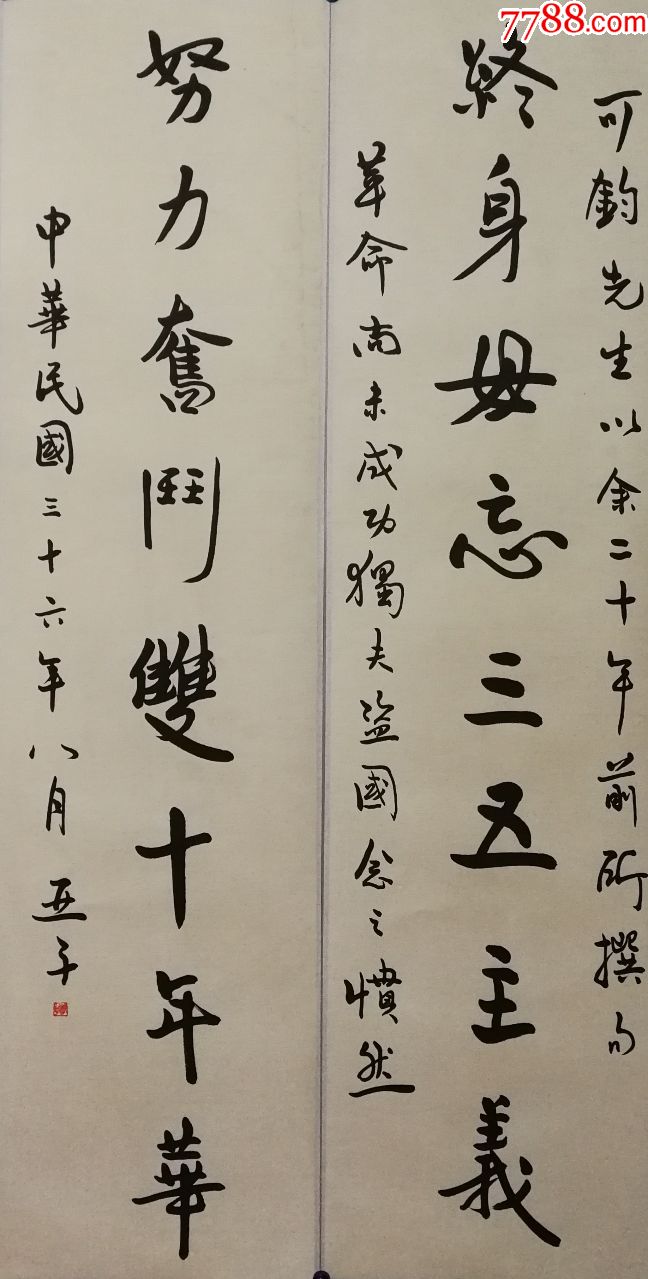 7788.com
可鈞先生以余二十年前所撰句
終身毋忘三五主義
革命尚未成功獨夫盜國念之憤然
努力奮鬥雙十年華
中華民國三十六年八月亚子